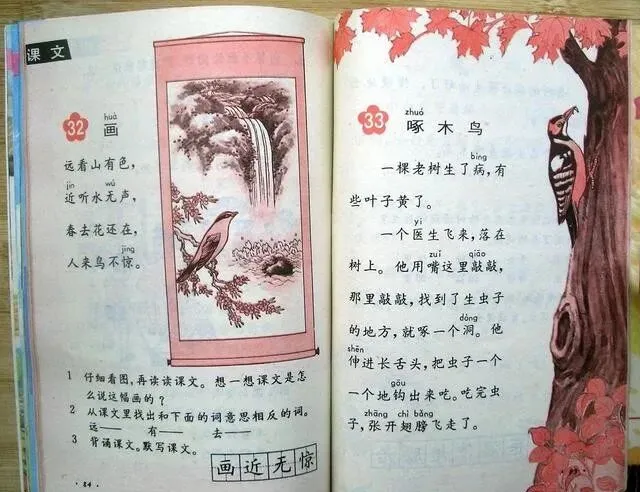 课文
huà
32 画
远看山有色，
jìn wú
近听水无声，
春去花还在，
jīng
人来鸟不惊。
1 仔细看图，再读读课文。想一想课文是怎
么说这幅画的？
2 从课文里找出和下面的词意思相反的词。
远—— 有—— 去——
3 背诵课文。默写课文。
画近无惊
· 84 ·
zhuó
33 啄木鸟
bìng
一棵老树生了病，有
些叶子黄了。
yī
一个医生飞来，落在
zuǐ qiāo
树上。他用嘴这里敲敲，
那里敲敲，找到了生虫子
dòng
的地方，就啄一个洞。他
shēn
伸进长舌头，把虫子一个
gōu
一个地钩出来吃。吃完虫
zhāng chì bǎng
子，张开翅膀飞走了。